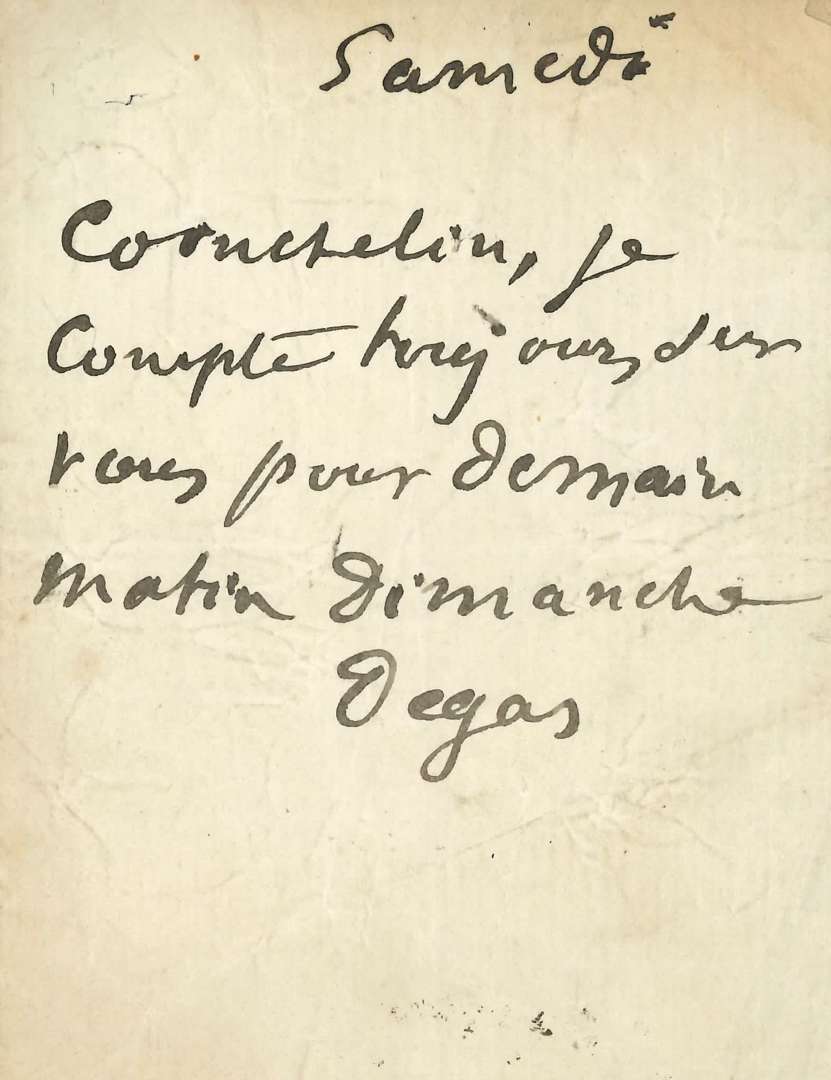 Samedi
je
compte toujours sur
vous pour demain
matin dimanche
Degas